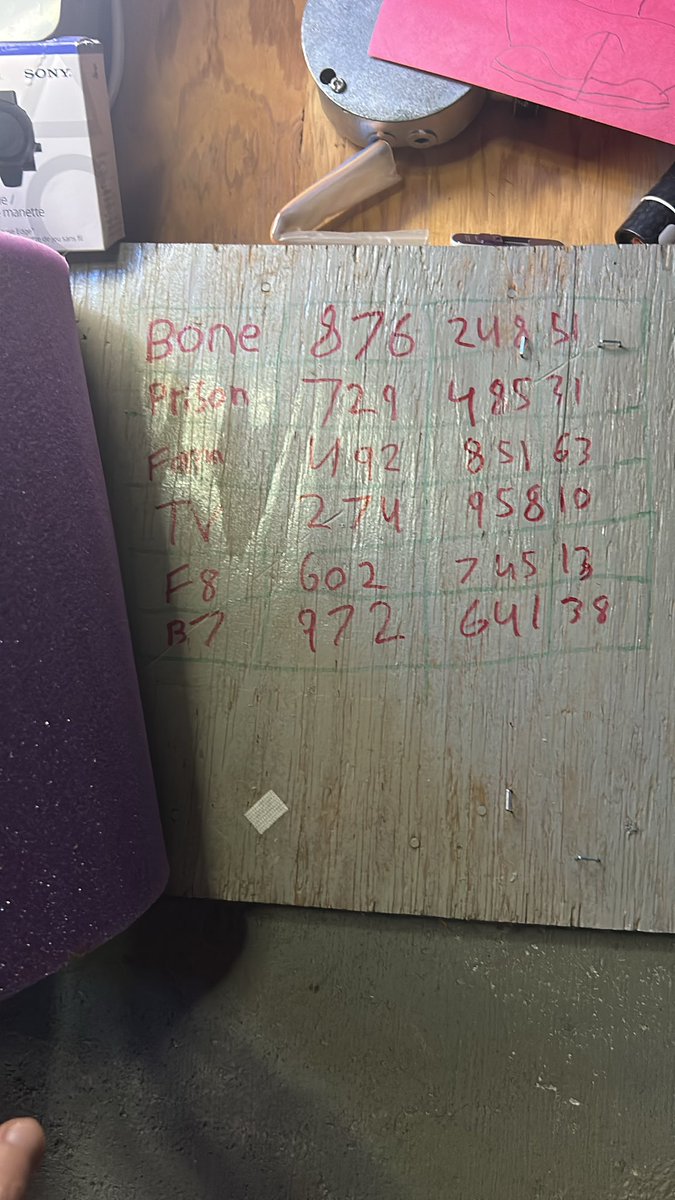 SONY
manette
re de jeu sans fil
Bone 876 248 51
Prison 729 485 31
Farm 492 851 63
TV 274 958 10
F8 602 745 13
B7 972 641 38